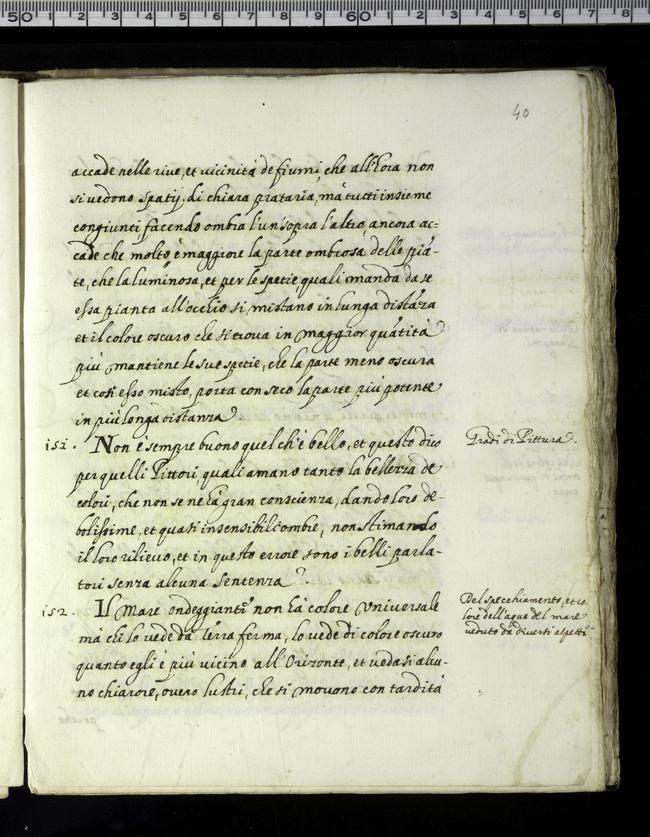 40
accade nelle rive, et vicinità de fiumi, che all'hora non
si vedono spatij, di chiara prataria, mà tutti insieme
congiunti facendo ombra l'un sopra l'altro, ancora ac=
cade che molto è maggiore la parte ombrosa delle piã-
te, che la luminosa, et per le spetie quali manda da se
essa pianta all'occhio si mistano in lunga distãza
et il colore oscuro che si trova in maggior quãtità
più mantiene le sue spetie, che la parte meno oscura
et così esso misto, porta con seco la parte più potente
in più longa distanza
151. Non è sempre buono quel ch'è bello, et questo dico
per quelli Pittori quali amano tanto la bellezza de
colori, che non se ne hà gran conscienza, dando loro de-
bolissime, et quasi insensibili ombre, non stimando
il loro rilievo, et in questo errore sono i belli parla-
tori senza alcuna sentenza.
Gradi di Pittura.
152. Il mare ondeggiante non hà colore universale
mà chi lo vede da terra ferma, lo vede di colore oscuro
quanto egli è più vicino all'Orizonte, et vedasi alcu-
no chiarore, overo lustri, che si movono con tardità
Del specchiamento, et co-
lore dell'aqua del mare
veduto da diversi aspetti